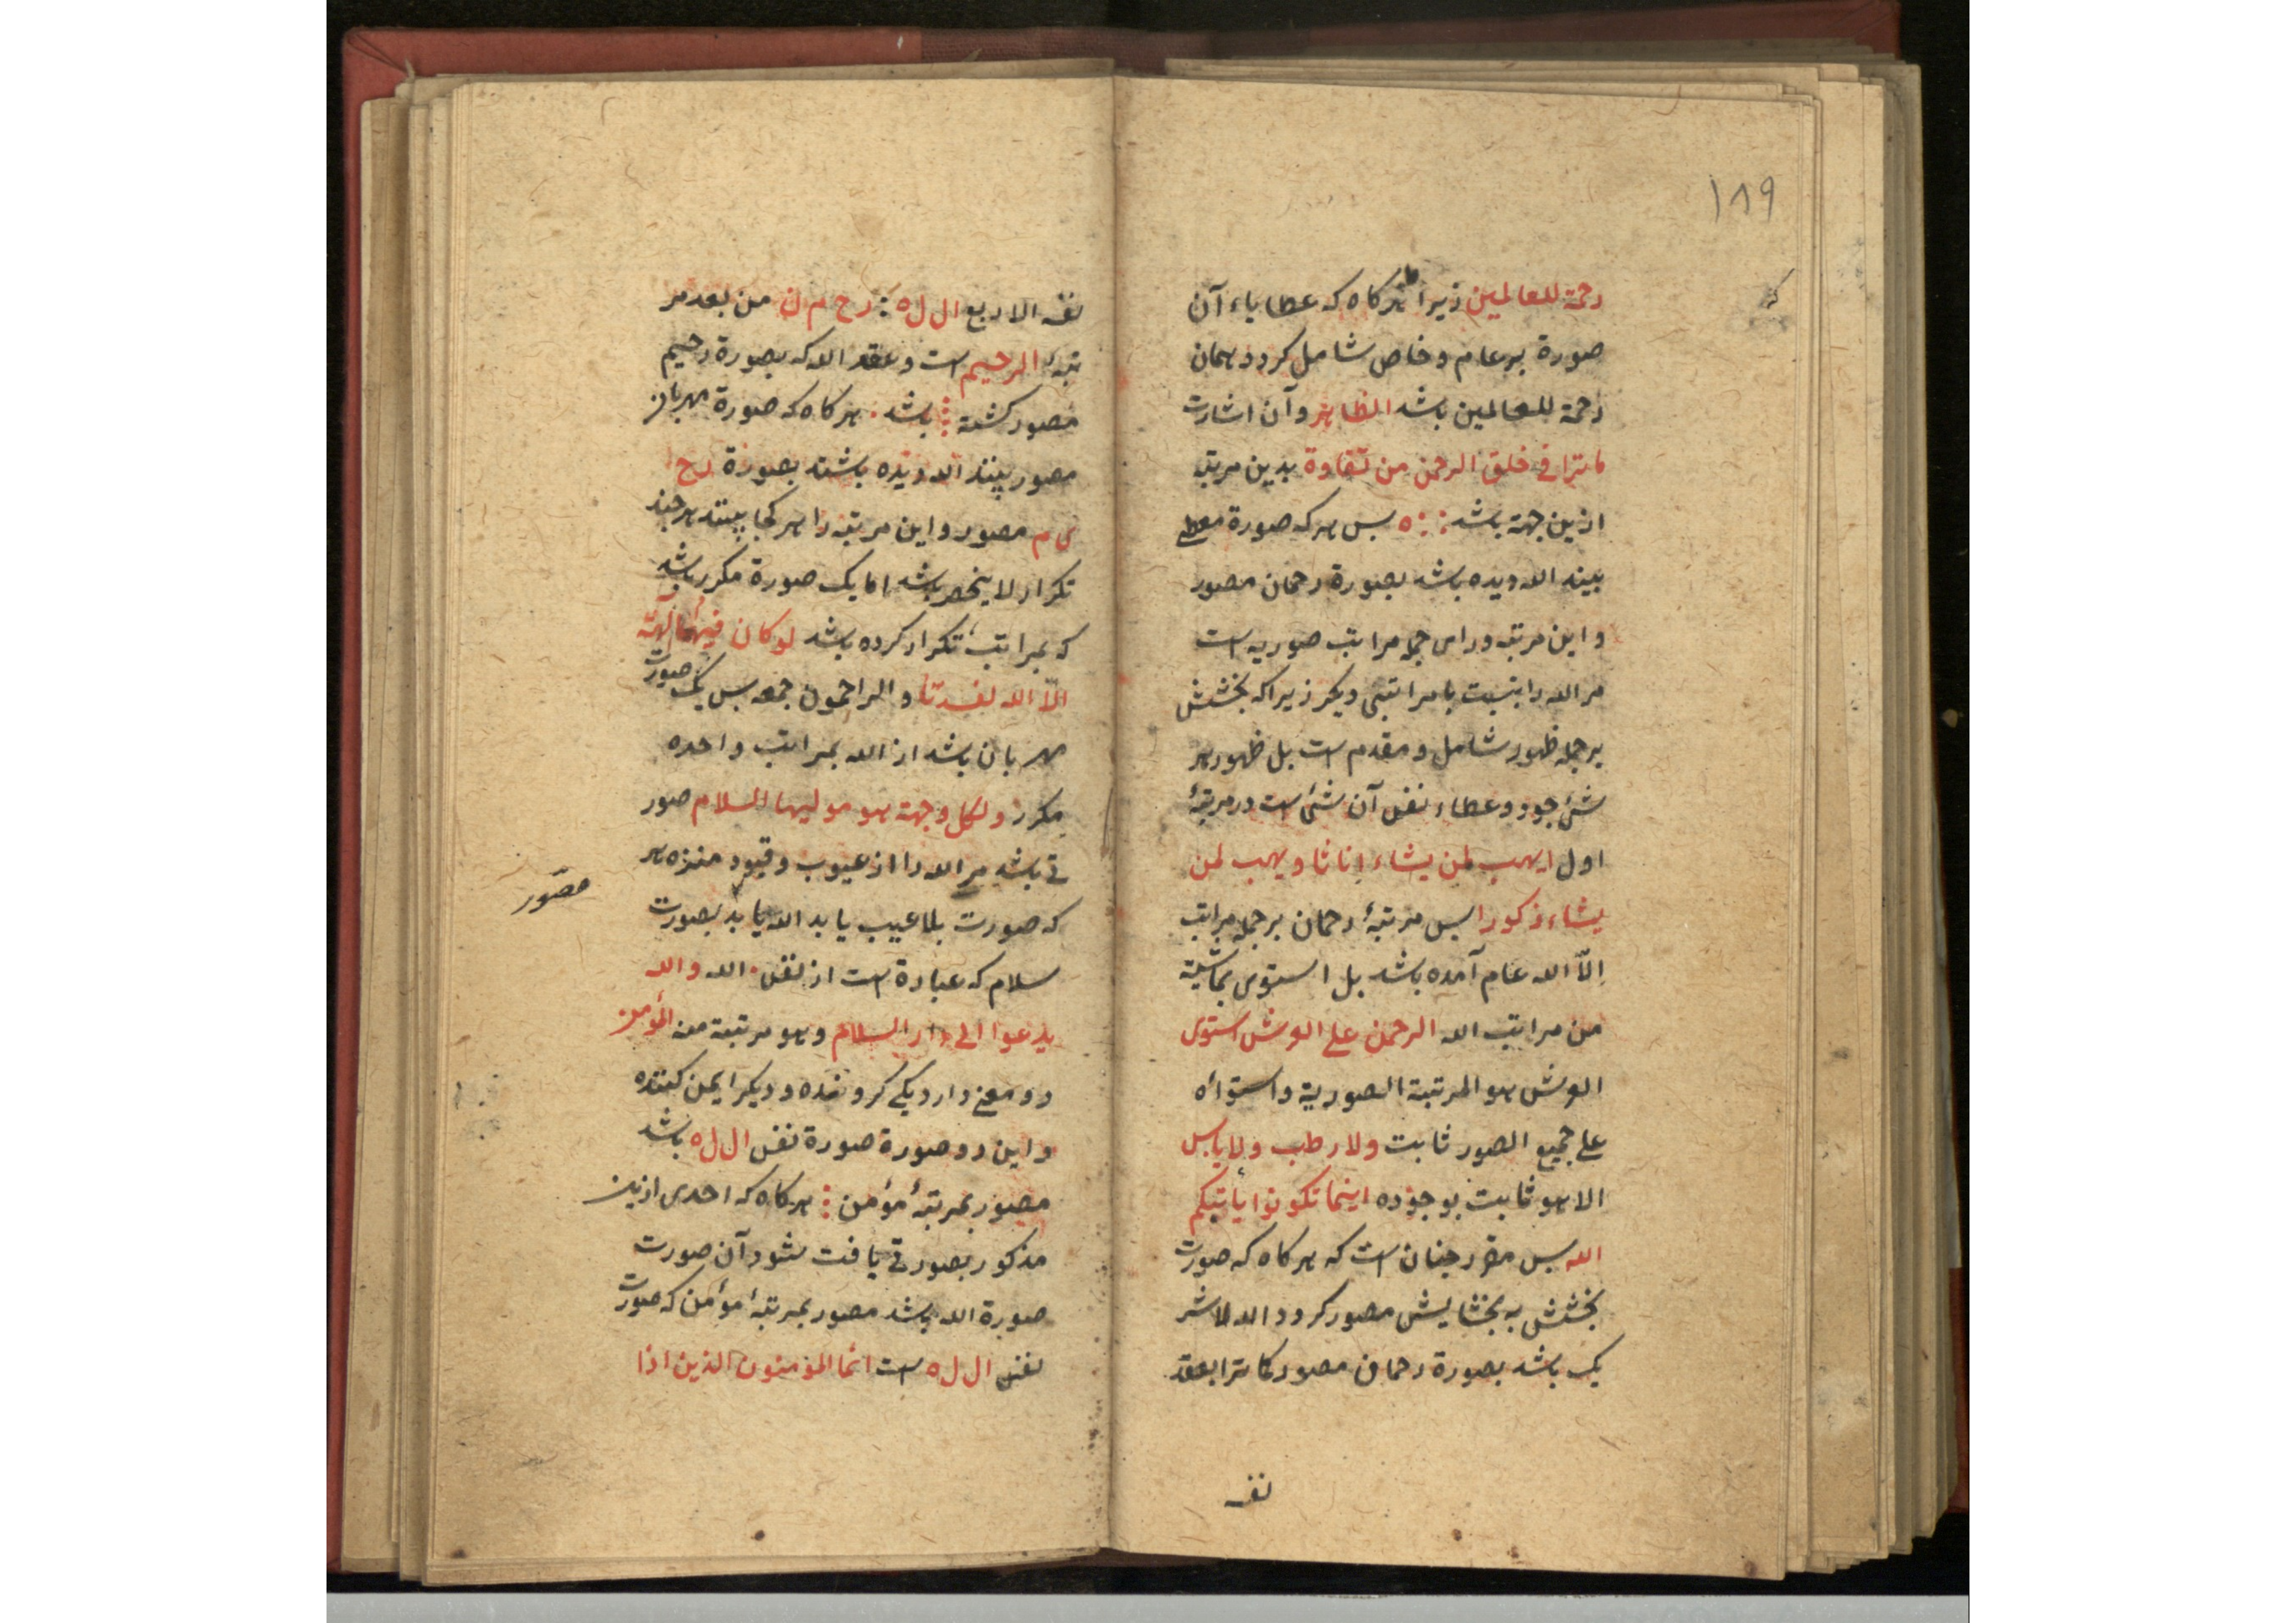 ١٨٩
رحمة للعالمين زیرا هرکاه که عطایاء آن
صورة بر عام و خاص شامل کردد همان
رحمة للعالمین باشد الظاهر و آن اشارت
ما ترا فی خلق الرحمن من تفاوة بدین مرتبه
ازین جهة باشد ه بس هر که صورة معطی
بیند الله دیده باشد بصورة رحمان مصور
و این مرتبه وراى جمله مراتب صوریه است
مر الله را بنسبت با مراتبی دیکر زیرا که بخشش
بر جمله ظهور شامل و مقدم است بل ظهور هر
شئ جود و عطاء نفس آن شئ است در مرتبۀ
اول ایهب لمن یشاء إناثا و یهب لمن
یشاء ذکورا بس مرتبۀ رحمان بر جمله مراتب
إلّا الله عام آمده باشد بل استوى
من مراتب الله الرحمن على العرش استوى
العرش هو المرتبة الصوریة و استوائه
على جمیع الصور ثابت ولا رطب ولا یابس
الا هو ثابت بوجوده اینما تکونوا یأتیکم
الله بس مقرر جنان است که هر کاه که صورت
بخشش به بخشایش مصور کردد الله
یک باشد بصورة رحمان مصور کما ترا بعقد
نفسه
نفسه الاربع ال ل ه رح م ن من بعد مر
تبۀ الرحیم است و عقد الله که بصورة رحیم
مصور کشته باشد هر کاه که صورة مهربان
مصور بینند الله دیده باشند بصورة رح
ی م مصور و این مرتبه را هر کجا بینند هر جند
تکرار لا ینحصر باشد اما یک صورة مکرر باشد
که بمراتب تکرار کرده باشد لو کان فیهما آلهة
الّا الله لفسدتا و الراحمون جمعه بس یک صورت
مهربان باشد از الله بمراتب واحده
مکرر ولکل وجهة هو مولیها السلام صور
تی باشد مر الله را از عیوب و قیود منزه هر
که صورت بلا عیب یابد الله یابد بصورت
مصّور
سلام که عبارة است از نفس الله والله
یدعوا الى دار السلام و هو مرتبة منه المؤمن
دو معنى دارد یکى کرونده و دیکر ایمن کننده
و این دو صورة صورة نفس ال ل ه باشد
مصور بمرتبۀ مؤمن هر کاه که احدى ازین
مذکور بصورتی یافت شود آن صورت
صورة الله باشد مصور بمرتبۀ مؤمن که صورت
نفس ال ل ه است انما المؤمنون الذین اذا